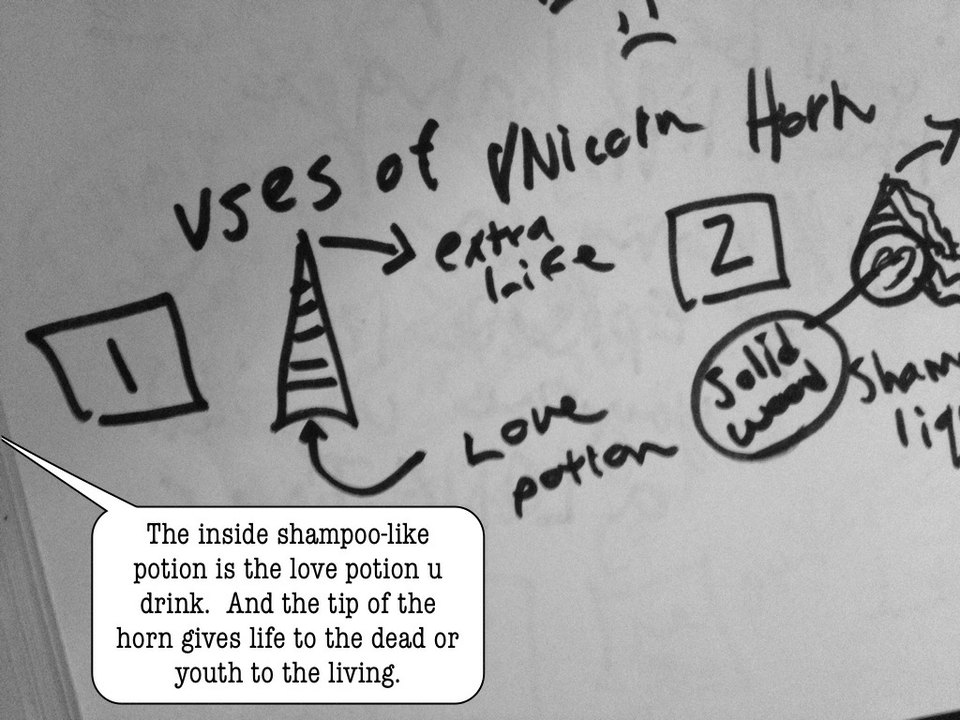 Uses of UNicorn Horn
extra
Life
1
2
Solid
wood
Sham
liq
Love
potion
The inside shampoo-like
potion is the love potion u
drink. And the tip of the
horn gives life to the dead or
youth to the living.